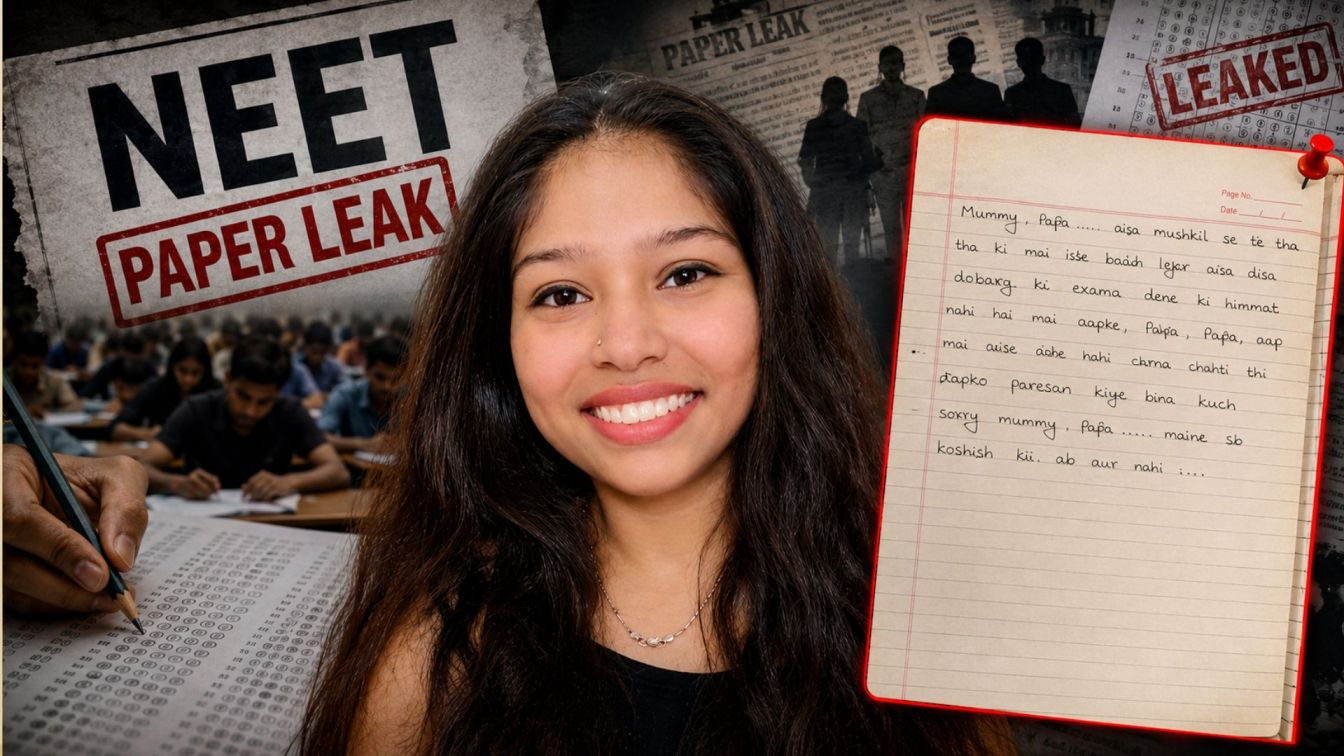 NEET
PAPER LEAK
PAPER LEAK
LEAKED
Page No.
Date / /
Mummy, Papa ..... aisa mushkil se te tha
tha ki mai isse baidh lejkr aisa disa
dobarg. ki exama dene ki himmat
nahi hai mai aapke, Palpa, Papa, aap
mai auise aiohe nahi chrma chahti thi
dapko paresan kiye bina kuch
sorry mummy, Papa ..... maine sb
koshish kii. ab aur nahi :...